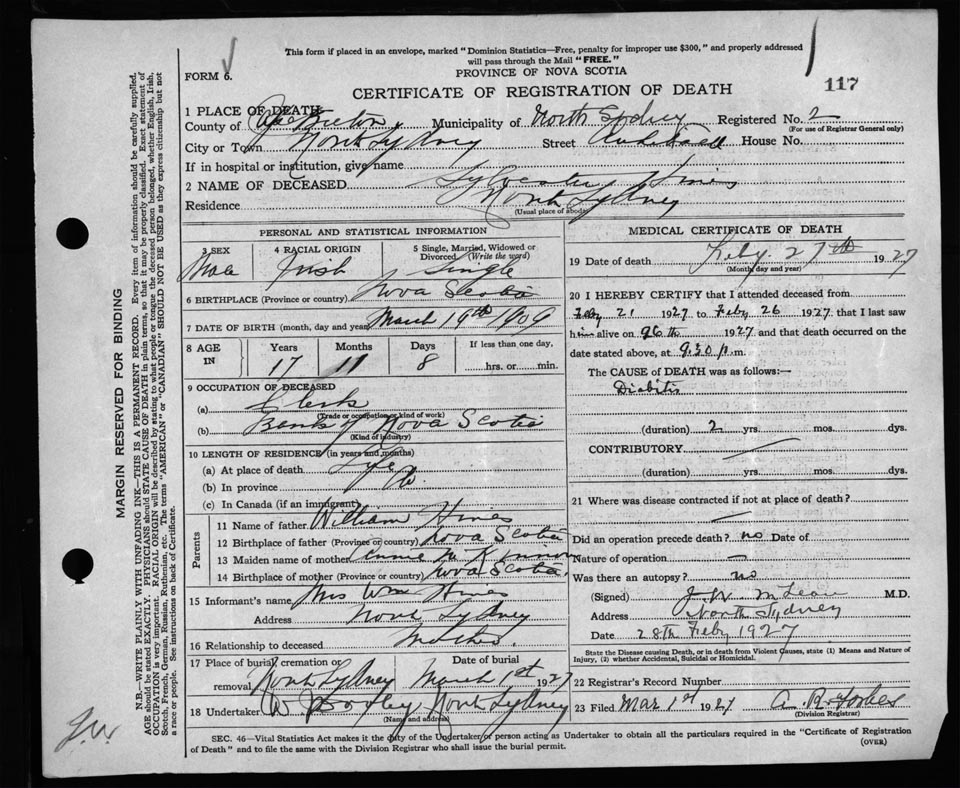 This form if placed in an envelope, marked "Dominion Statistics—Free, penalty for improper use $300," and properly addressed
will pass through the Mail "FREE."
FORM 6.
PROVINCE OF NOVA SCOTIA
117
CERTIFICATE OF REGISTRATION OF DEATH
1 PLACE OF DEATH:
County of Cape Breton Municipality of North Sydney Registered No. 2
(For use of Registrar General only)
City or Town North Sydney Street Archibald House No.
If in hospital or institution, give name
2 NAME OF DECEASED Sylvester Hines
Residence North Sydney
(Usual place of abode)
PERSONAL AND STATISTICAL INFORMATION
3 SEX 4 RACIAL ORIGIN 5 Single, Married, Widowed or
Divorced (Write the word)
Male Irish Single
6 BIRTHPLACE (Province or country) Nova Scotia
7 DATE OF BIRTH (month, day and year) March 19th 1909
8 AGE IN Years Months Days If less than one day,
17 11 8 hrs. or min.
9 OCCUPATION OF DECEASED
(a) Clerk
(Trade or occupation or kind of work)
(b) Bank of Nova Scotia
(Kind of industry)
10 LENGTH OF RESIDENCE (in years and months)
(a) At place of death Life
(b) In province
(c) In Canada (if an immigrant)
Parents
11 Name of father William Hines
12 Birthplace of father (Province or country) Nova Scotia
13 Maiden name of mother Annie
14 Birthplace of mother (Province or country) Nova Scotia
15 Informant's name Mrs Wm Hines
Address North Sydney
16 Relationship to deceased Mother
17 Place of burial, cremation or Date of burial
removal North Sydney March 1st 1927
18 Undertaker W North Sydney
(Name and address)
MEDICAL CERTIFICATE OF DEATH
19 Date of death Feby. 27th 1927
(Month, day and year)
20 I HEREBY CERTIFY that I attended deceased from
Feby 21 1927 to Feby 26 1927 that I last saw
him alive on 26th 1927 and that death occurred on the
date stated above, at 9.30 p.m.
The CAUSE of DEATH was as follows:—
Diabitis
(duration) 2 yrs. mos. dys.
CONTRIBUTORY
(duration) yrs. mos. dys.
21 Where was disease contracted if not at place of death?
Did an operation precede death? no Date of
Nature of operation —
Was there an autopsy? no
(Signed) J. W. McLean M.D.
Address North Sydney
Date 28th Feby 1927
State the Disease causing Death, or in death from Violent Causes, state (1) Means and Nature of
Injury, (2) whether Accidental, Suicidal or Homicidal.
22 Registrar's Record Number
23 Filed Mar 1st 1927 A. R. Forbes
(Division Registrar)
SEC. 46—Vital Statistics Act makes it the duty of the Undertaker or person acting as Undertaker to obtain all the particulars required in the "Certificate of Registration
of Death" and to file the same with the Division Registrar who shall issue the burial permit.
(OVER)
MARGIN RESERVED FOR BINDING
N.B.—WRITE PLAINLY WITH UNFADING INK—THIS IS A PERMANENT RECORD. Every item of information should be carefully supplied.
AGE should be stated EXACTLY. PHYSICIANS should STATE CAUSE OF DEATH in plain terms, so that it may be properly classified. Exact statement of
OCCUPATION is very important. RACIAL ORIGIN will be described by stating to what people or tongue the deceased person belonged, whether English, Irish,
Scotch, French, German, Russian, Ruthenian, etc. The terms "AMERICAN" or "CANADIAN" SHOULD NOT BE USED as they express citizenship but not
a race or people. See instructions on back of Certificate.